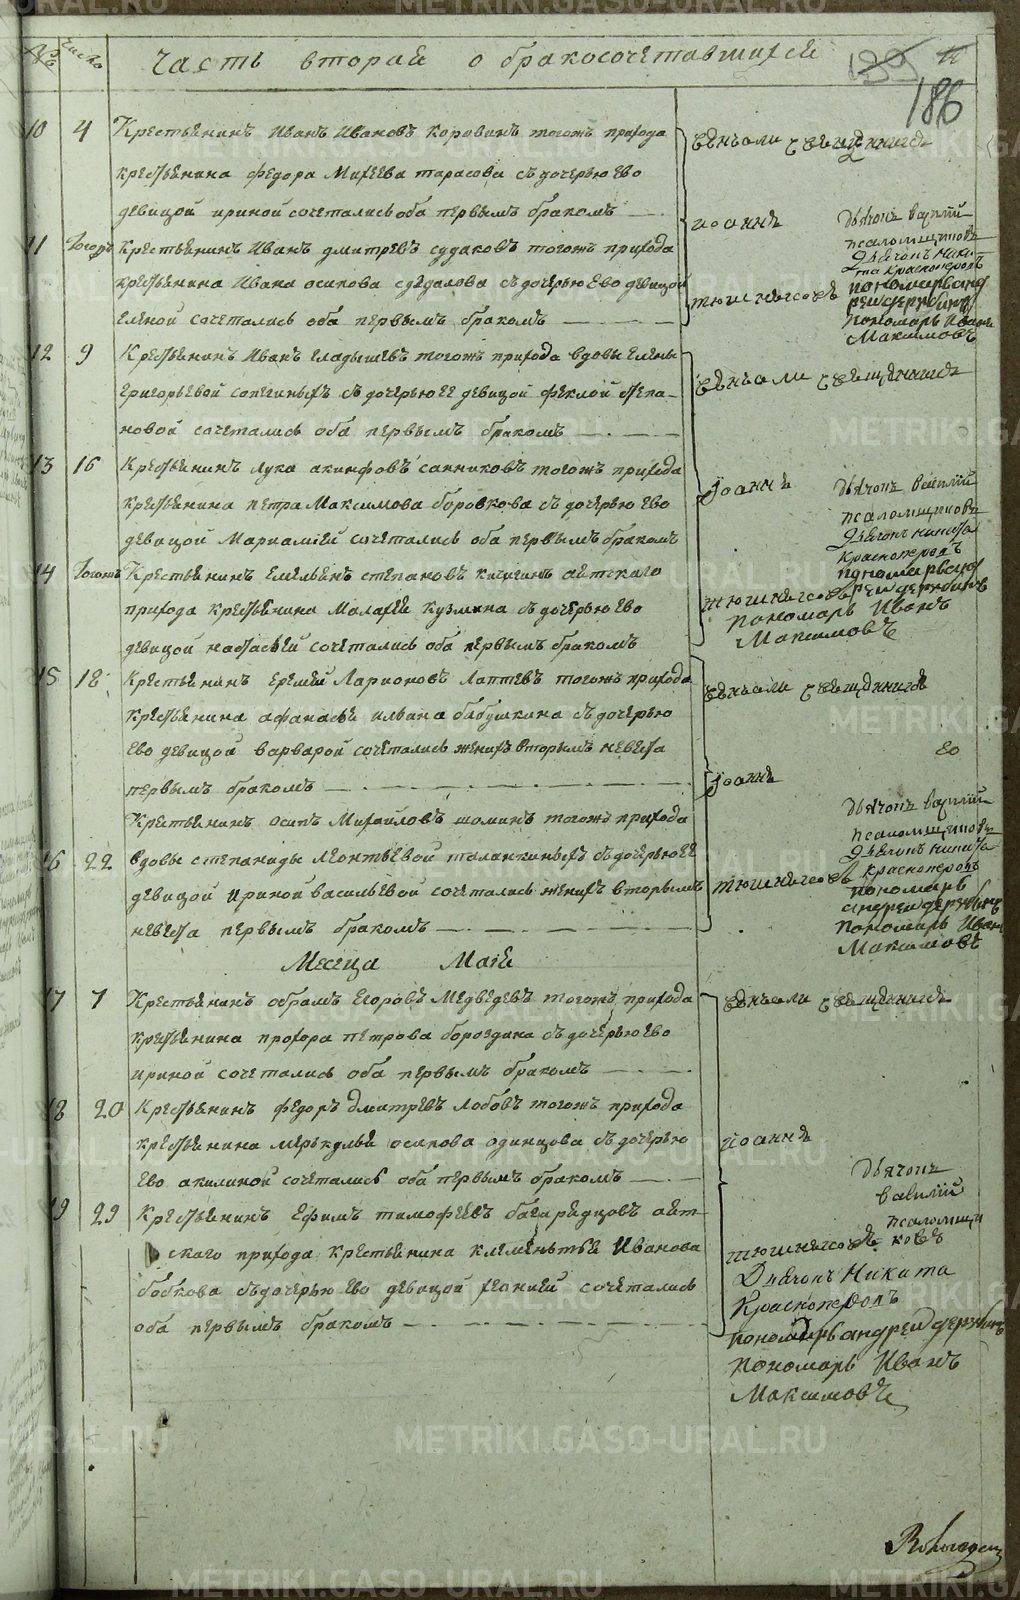 Часть вторая о бракосочетавшихся
186
10 4 Крестьянинъ Иванъ Ивановъ Коровинъ тогожъ прихода
крестьянина Федора Михеева Тарасова съ дочерью ево
девицой Ириной сочетались оба первымъ бракомъ
11 Тогожъ Крестьянинъ Иванъ Дмитревъ Судаковъ тогожъ прихода
крестьянина Ивана Осипова съ дочерью ево девицой
Еленой сочетались оба первымъ бракомъ
12 9 Крестьянинъ Иванъ Еладышевъ тогожъ прихода вдовы Елены
Григорьевой съ дочерью ее девицой Феклой Степа-
новой сочетались оба первымъ бракомъ
13 16 Крестьянинъ Лука Акинфовъ Санниковъ тогожъ прихода
крестьянина Петра Максимова Боровкова съ дочерью ево
девицой Мариамией сочетались оба первымъ бракомъ
14 Тогожъ Крестьянинъ Емельянъ Степановъ Кичигинъ аятскаго
прихода крестьянина Малафея Кузмина съ дочерью ево
девицой Настасьей сочетались оба первымъ бракомъ
15 18 Крестьянинъ Еремей Ларионовъ Лаптевъ тогожъ прихода
крестьянина Афанасья Ильина Бабушкина съ дочерью
ево девицой Варварой сочетались женихъ вторымъ невеста
первымъ бракомъ
Крестьянинъ Осипъ Михайловъ Шоминъ тогожъ прихода
16 22 вдовы Степаниды Леонтьевой Таланкиныхъ съ дочерью ее
девицой Ириной Васильевой сочетались женихъ вторымъ
невеста первымъ бракомъ
Месяца Маия
17 7 Крестьянинъ Обрамъ Егоровъ Медведевъ тогожъ прихода
крестьянина Прохора Петрова Бороздина съ дочерью ево
Ириной сочетались оба первымъ бракомъ
18 20 Крестьянинъ Федоръ Дмитревъ Лобовъ тогожъ прихода
крестьянина Меркулья Осипова Одинцова съ дочерью
ево Акилиной сочетались оба первымъ бракомъ
19 29 Крестьянинъ Ефимъ Тимофеевъ аят-
скаго прихода крестьянина Клементья Иванова
Бобкова съ дочерью ево девицой Хеонией сочетались
оба первымъ бракомъ
венчали священникъ
иоаннъ
дьячокъ василий
псаломщиковъ
дьячонъ Ники-
та Красноперовъ
пономарь анд
рей дерябинъ
пономарь Иванъ
Максимовъ
венчали священникъ
Иоаннъ
дьячокъ василий
псаломщиковъ
дьячонъ никита
Красноперовъ
пономарь анд
рей дерябинъ
пономарь Иванъ
Максимовъ
венчали священникъ
Иоаннъ
дьячокъ василий
псаломщиковъ
дьячонъ никита
Красноперовъ
пономарь
андрей дерябинъ
пономарь Иванъ
Максимовъ
венчали священникъ
иоаннъ
дьячокъ
василий
псаломщи
ковъ
дьячонъ Никита
Красноперовъ
пономарь андрей дерябинъ
пономарь Иванъ
Максимовъ
METRIKI.GASO-URAL.RU